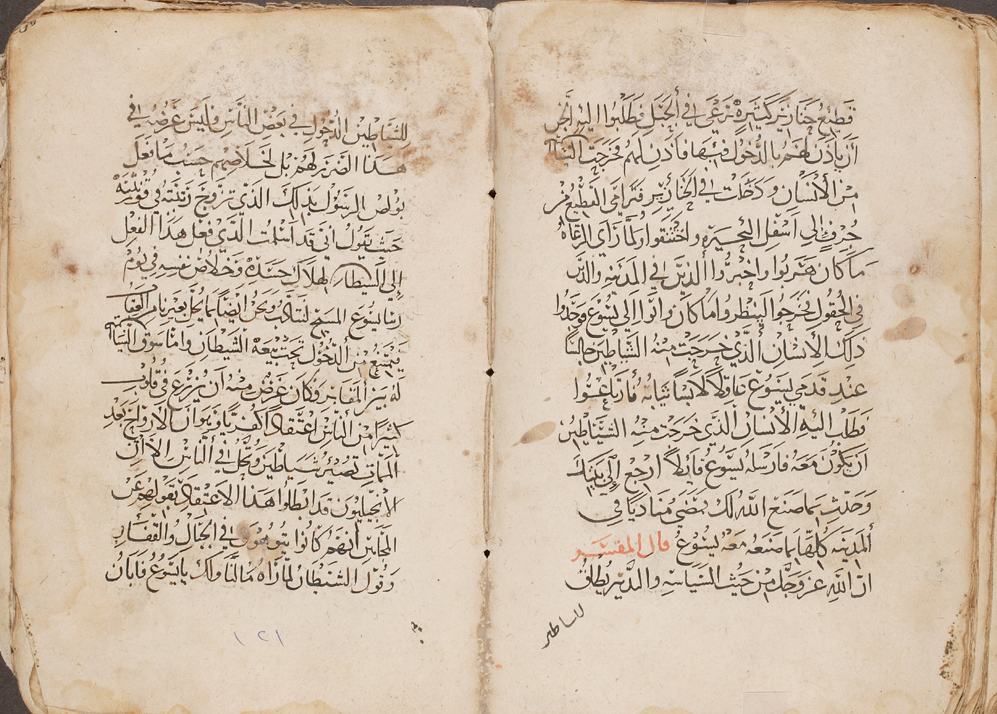 قطيع خنازير كثيرة ترعى في الجبل فطلبوا اليه
ان ياذن لهم بالدخول فيها فاذن لهم فخرجت
من الانسان ودخلت في الخنازير فترامى القطيع من
جرف الى اسفل البحيرة واختنقوا ولما راى الرعاة
ما كان هربوا واخبروا الذين في المدينة والذين
في الحقول فخرجوا لينظروا ما كان واتوا الى يسوع فوجدوا
ذلك الانسان الذي خرجت منه الشياطين جالسًا
عند قدمي يسوع عاقلًا لابسًا ثيابه فارتاعوا
وطلب اليه الانسان الذي خرجت منه الشياطين
ان يكون معه فارسله يسوع قايلًا ارجع الى بيتك
وحدث بما صنع الله لك فمضى مناديًا في
المدينة كلها بما صنعه معه يسوع قال المفسر
ان الله عز وجل من حيث السياسة والتدبير يطلق
للشياطين
للشياطين الدخول في بعض الناس وليس غرضه في
هذا الضرر لهم بل لخلاصهم حسب ما فعل
بولص الرسول بذلك الذي تزوج
حيث يقول اني قد اسلمت الذي فعل هذا الفعل
الى الشيطان لهلاك جسده وخلاص نفسه في يوم
ربنا يسوع المسيح
من الدخول تحت بيعة الشيطان واما سوق
له بين المقابر فكان غرض منه ان يزرع في قلوب
كثيرًا من الناس اعتقاد كفريًا وهو ان الارواح بعد
الممات تصير شياطين وتحل في الناس الا ان
الانجيليون قد ابطلوا هذا الاعتقاد بقولهم عن
المجانين انهم كانوا يتوهون في الجبال والقفار
وقول الشيطان لما راه ما لنا ولك يا يسوع
١٢١